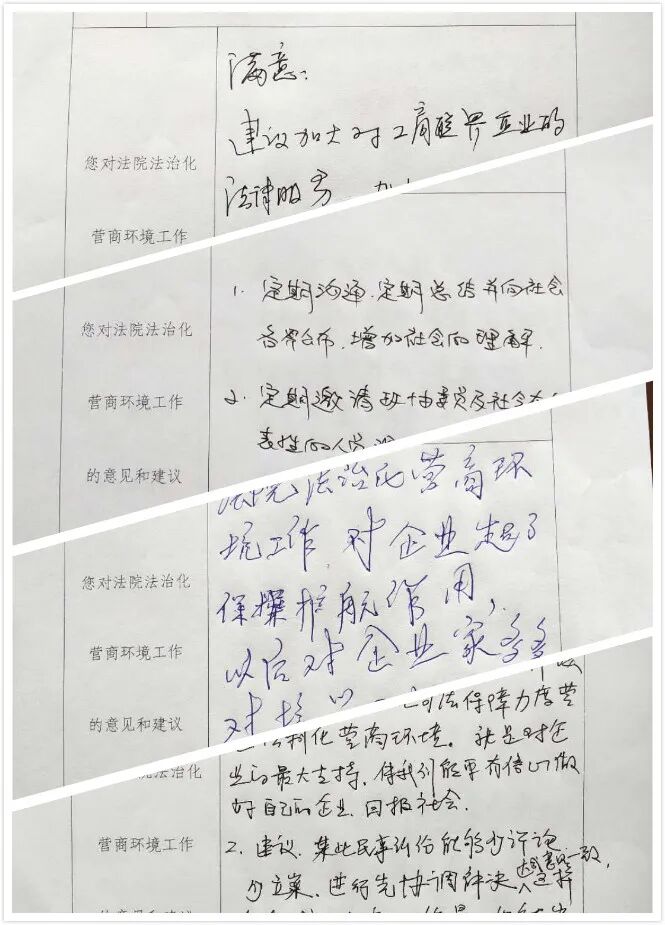 满意:
建议加大对工商联界企业的
您对法院法治化
法律服务
营商环境工作
1. 定期沟通、定期总结并向社会
您对法院法治化
各界公布,增加社会的理解.
营商环境工作
2. 定期邀请政协委员及社会
表性的人员
的意见和建议
法院法治化营商环
境工作,对企业起了
您对法院法治化
保撰护航作用,
营商环境工作
以后对企业家多多
对接
的意见和建议
司法保障力度营
化营商环境。就是对企
法治化
业的最大支持,使我们能更有信心做
好自己的企业、回报社会.
营商环境工作
2. 建议、某些民事纠纷能够少评论
少立案、进行先协调解决、达成意见一致,
这样